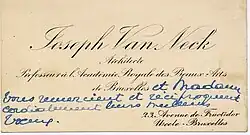 Joseph Van Neck
Architecte
Professeur à l'Académie Royale des Beaux-Arts
de Bruxelles et Madame
vous remercient et réciproquent
cordialement leurs meilleurs
vœux.
23, Avenue de Foestraets
Uccle-Bruxelles